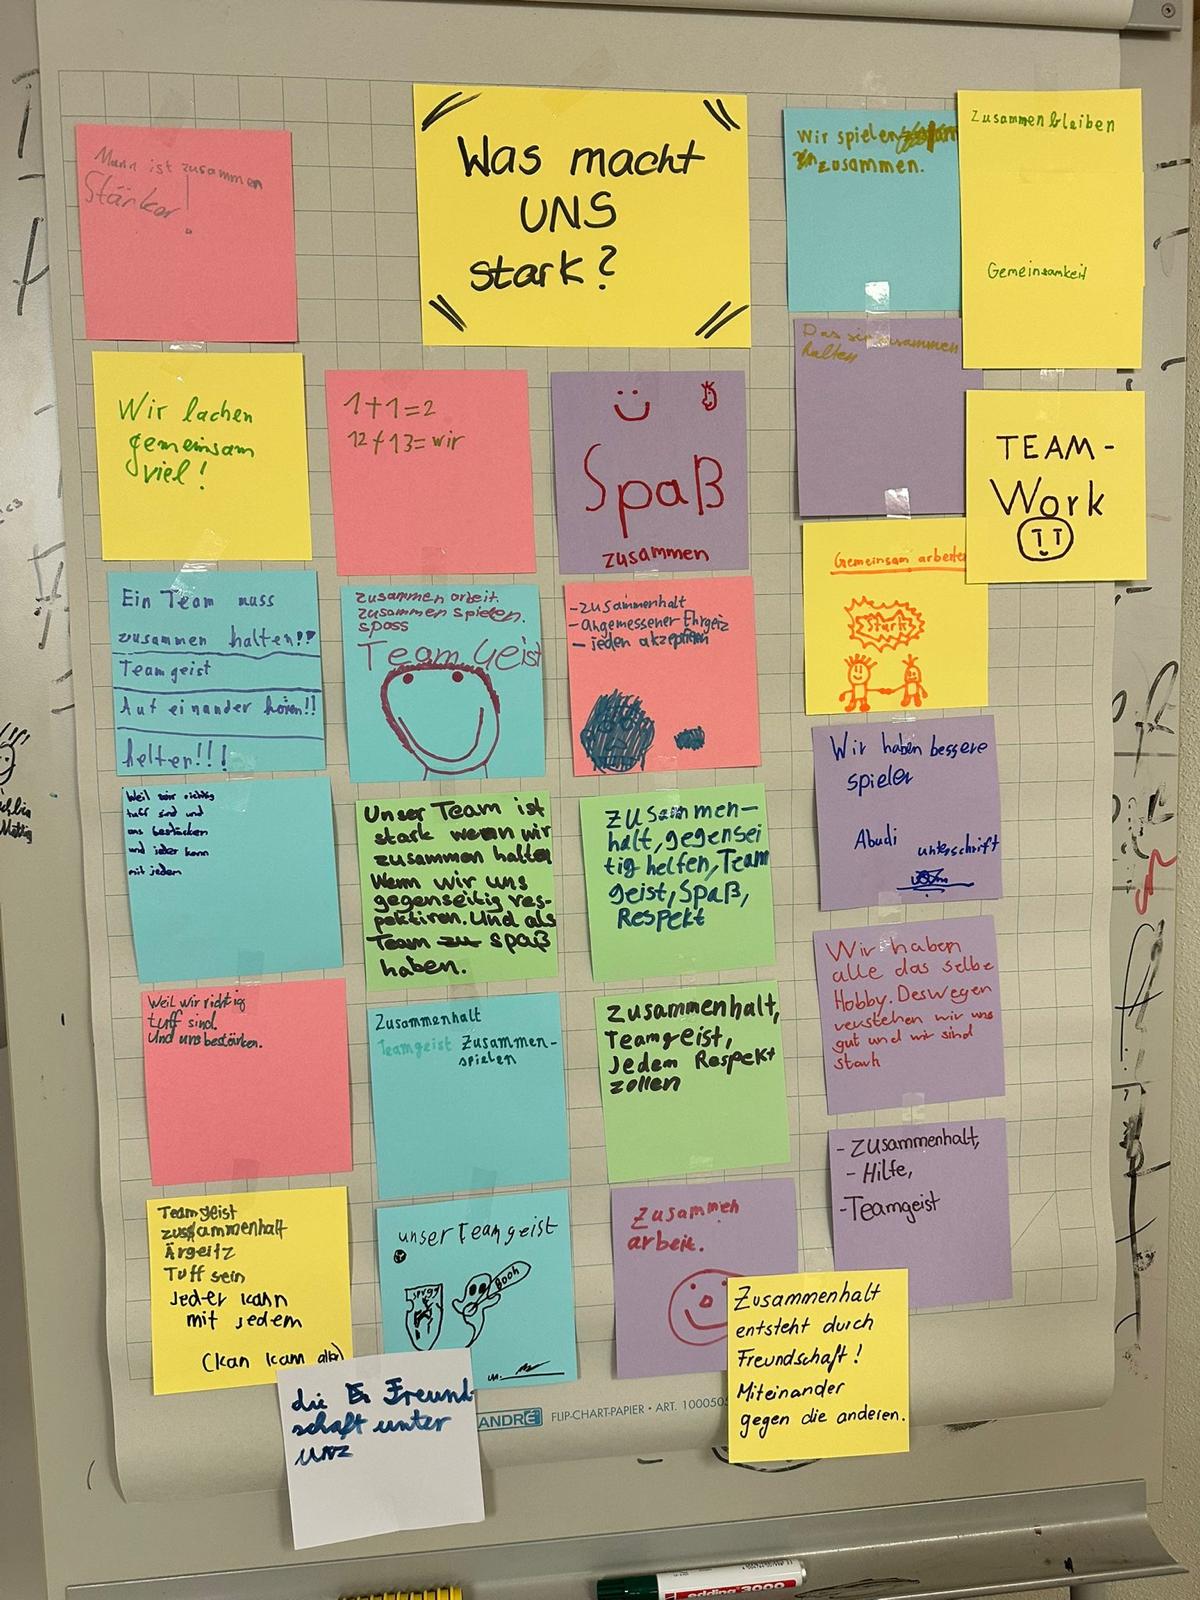 Was macht
UNS
stark?
Mann ist zusammen
Stärker!
Wir lachen
gemeinsam
viel!
Ein Team muss
zusammen halten!!
Teamgeist
Auf einander hören!!
helfen!!!
Weil wir richtig
tuff sind und
uns bestäcken
und jeder kann
mit jedem
Weil wir richtig
tuff sind.
Und uns bestärken.
Teamgeist
zussammenhalt
Ärgeitz
Tuff sein
Jeder kann
mit jedem
(kan kam albi)
die Freund-
schaft unter
unz
1+1=2
12+13=wir
zusammen arbeit.
zusammen spielen.
spass
Team geist
Unser Team ist
stark wenn wir
zusammen halten
Wenn wir uns
gegenseitig res-
pektiren. Und als
Team zu spaß
haben.
Zusammenhalt
Teamgeist Zusammen-
spielen
unser Teamgeist
Booh
Spaß
zusammen
-zusammenhalt
-angemessener Ehrgeiz
-jeden akzeptieren
Zusammen-
halt, gegensei
tig helfen, Team
geist, Spaß,
Respekt
Zusammenhalt,
Teamgeist,
Jedem Respekt
zollen
Zusammen
arbeit.
Zusammenhalt
entsteht durch
Freundschaft!
Miteinander
gegen die anderen.
Wir spielen
zusammen.
Das sie zusammen
halten
Gemeinsam arbeiten
Stark
Wir haben bessere
spieler
Abudi
unterschrift
Wir haben
alle das selbe
Hobby. Deswegen
verstehen wir uns
gut und wir sind
stark
- Zusammenhalt,
- Hilfe,
-Teamgeist
Zusammenbleiben
Gemeinsamkeit
TEAM-
Work
ANDRÉ FLIP-CHART-PAPIER • ART. 100050
edding 3000